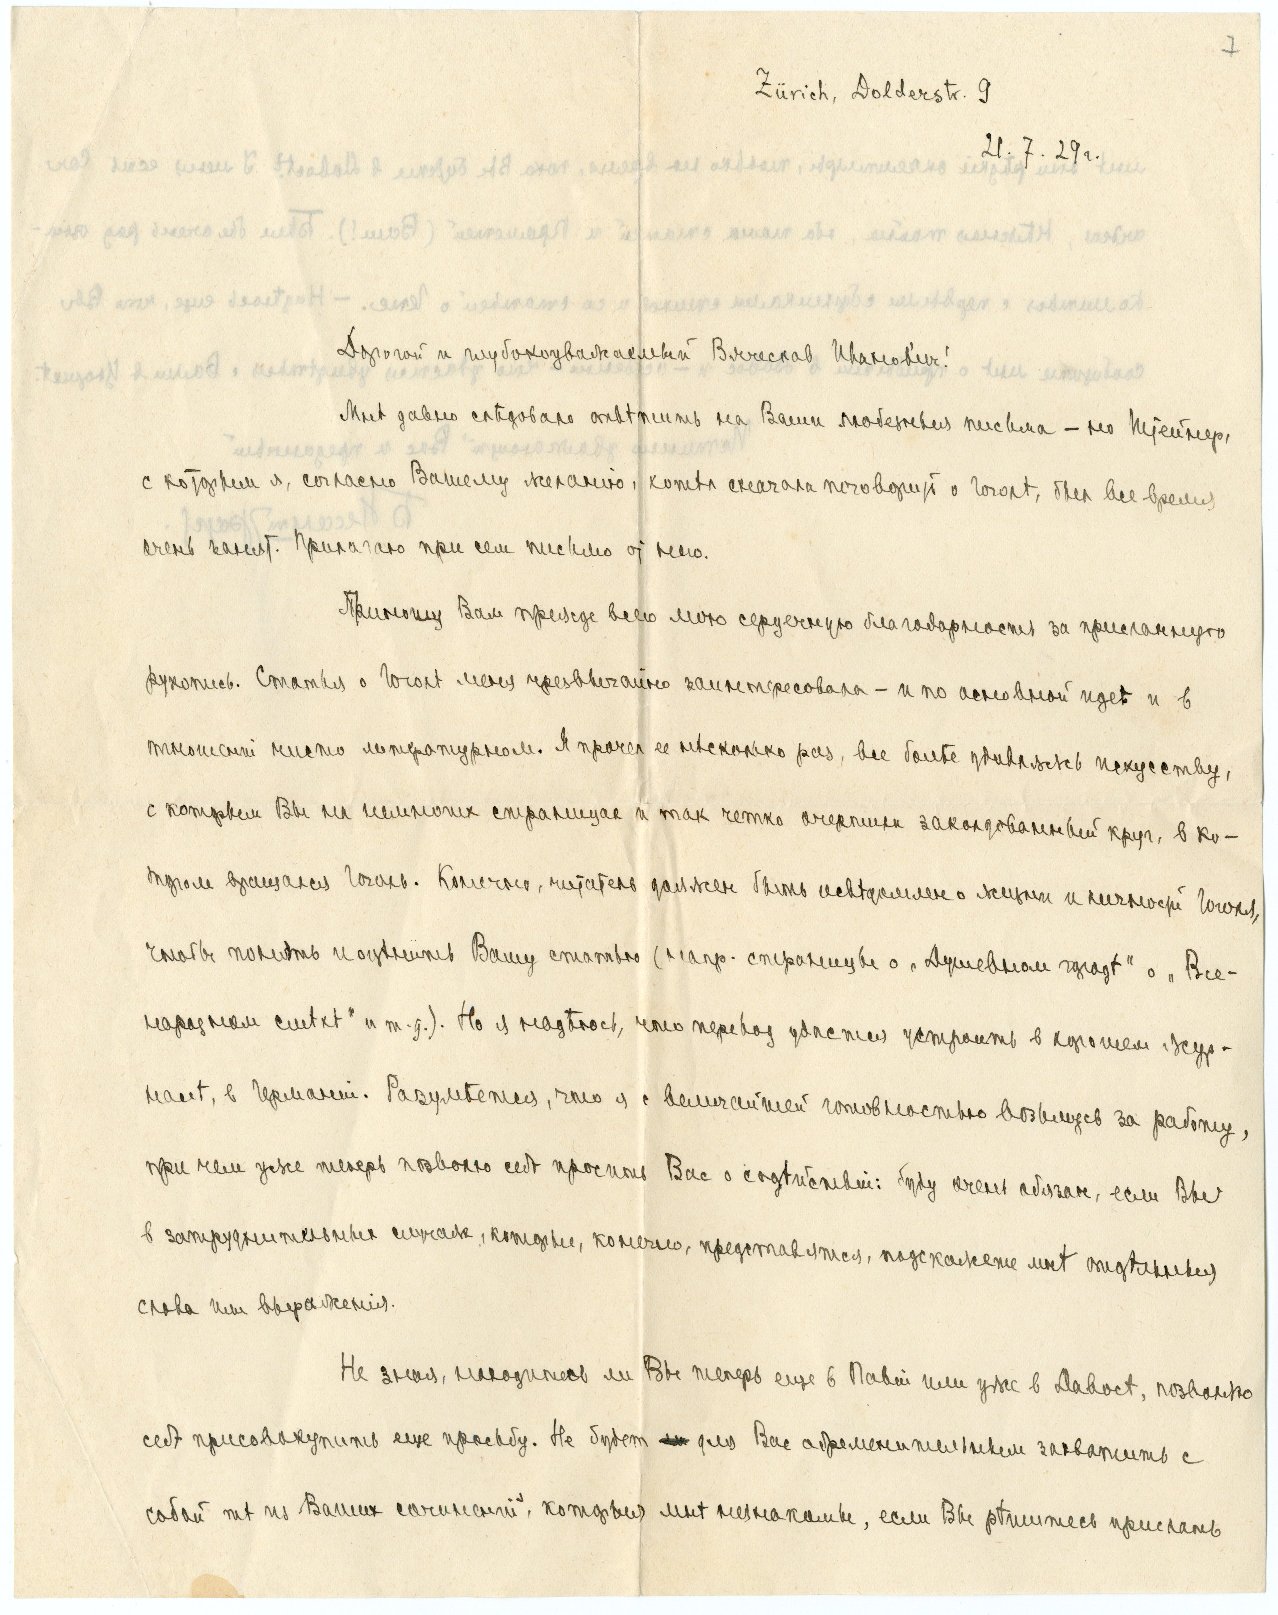 7
Zürich, Dolderstr. 9
21. 7. 29 г.
Дорогой и глубокоуважаемый Вячеслав Иванович!
Мнѣ давно слѣдовало отвѣтить на Ваши любезныя письма – но Штейнер,
с которым я, согласно Вашему желанію, хотѣл сначала поговорить о Гоголѣ, был все время
очень занят. Прилагаю при сем письмо от него.
Приношу Вам прежде всего мою сердечную благодарность за присланную
рукопись. Статья о Гоголѣ меня чрезвычайно заинтересовала – и по основной идеѣ и в
отношеніи чисто литературном. Я прочел ее нѣсколько раз, все болѣе удивляясь искусству,
с которым Вы на немногих страницах и так четко очертили заколдованный круг, в ко-
тором вращался Гоголь. Конечно, читатель должен быть освѣдомлен о жизни и личности Гоголя,
чтобы понять и оцѣнить Вашу статью (напр. страницы о „Душевном градѣ" о „Все-
народном смѣхѣ" и т. д.). Но я надѣюсь, что перевод удастся устроить в хорошем жур-
налѣ, в Германіи. Разумѣется, что я с величайшей готовностью возьмусь за работу,
при чем уже теперь позволю себѣ просить Вас о содѣйствіи: буду очень обязан, если Вы
в затруднительных случаях, которые, конечно, представятся, подскажете мнѣ отдѣльныя
слова или выраженія.
Не зная, находитесь ли Вы теперь еще в Павіи или уже в Давосѣ, позволяю
себѣ присовокупить еще просьбу. Не будет для Вас обременительным захватить с
собой тѣ из Ваших сочиненій, которыя мнѣ незнакомы, если Вы рѣшитесь прислать